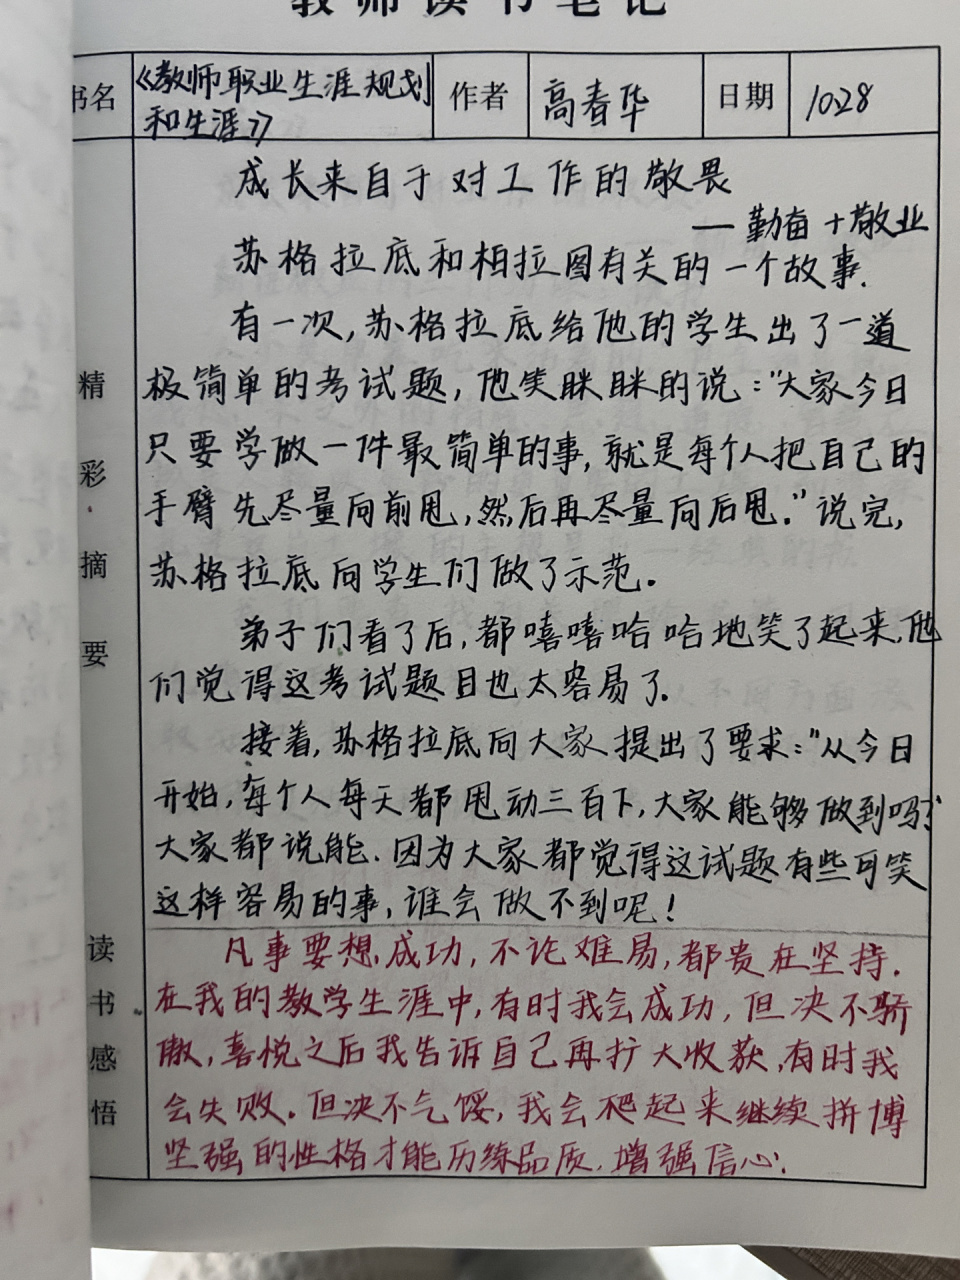 教师读书笔记
书名 《教师职业生涯规划和生涯》 作者 高春华 日期 1028
成长来自于对工作的敬畏
—勤奋+敬业
苏格拉底和柏拉图有关的一个故事.
有一次,苏格拉底给他的学生出了一道
极简单的考试题,他笑眯眯的说:"大家今日
只要学做一件最简单的事,就是每个人把自己的
手臂先尽量向前甩,然后再尽量向后甩."说完,
苏格拉底向学生们做了示范.
弟子们看了后,都嘻嘻哈哈地笑了起来,他
们觉得这考试题目也太容易了.
接着,苏格拉底向大家提出了要求:"从今日
开始,每个人每天都甩动三百下,大家能够做到吗?"
大家都说能.因为大家都觉得这试题有些可笑
这样容易的事,谁会做不到呢!
精彩摘要
凡事要想成功,不论难易,都贵在坚持.
在我的教学生涯中,有时我会成功,但决不骄
傲,喜悦之后我告诉自己再扩大收获,有时我
会失败.但决不气馁,我会爬起来继续拼博
坚强的性格才能历练品质.增强信心.
读书感悟